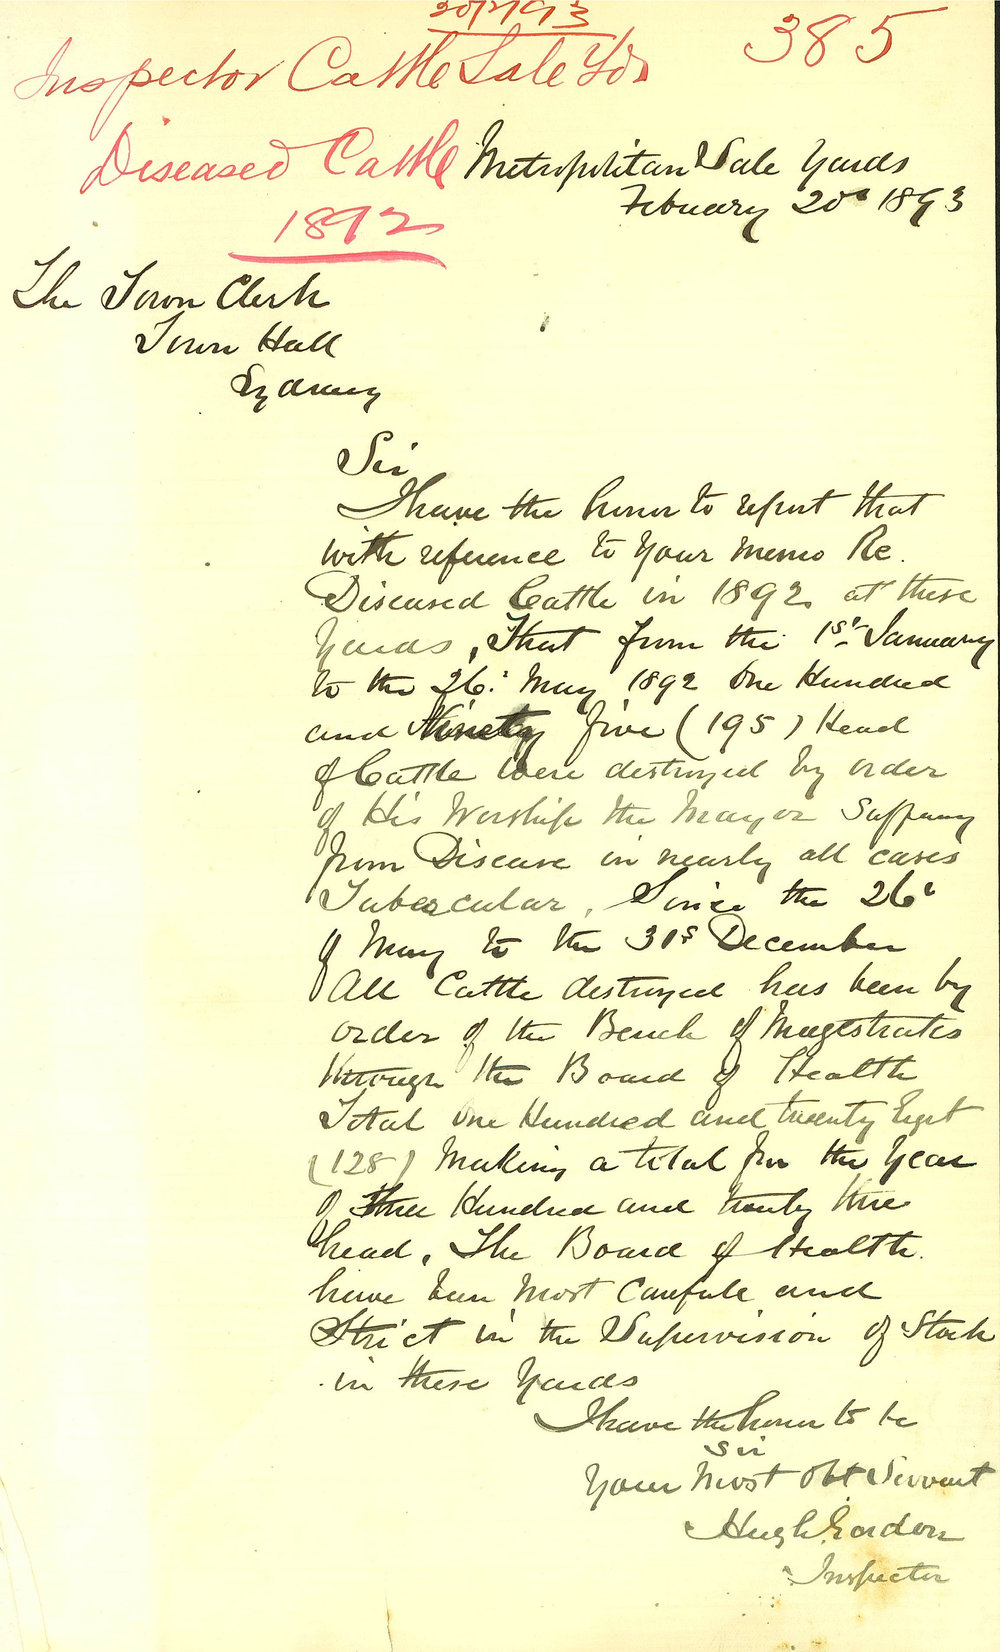 20/2/93
385
Inspector Cattle Sale Yds
Diseased Cattle
1892
Metropolitan Sale Yards
Febuary 20d 1893
The Town Clerk
Town Hall
Sydney
Sir
I have the honor to report that
with reference to Your Memo Re.
Diseased Cattle in 1892 at these
Yards, That from the 1st January
to the 26. May 1892 One Hundred
and Ninety five (195) Head
of Cattle were destroyed by order
of His Worship the Mayor Suffering
from Disease in nearly all cases
Tubercular, Since the 26
of May to the 31s December
All Cattle destroyed has been by
order of the Bench of Magistrates
through the Board of Health
Total One Hundred and twenty Eight
(128) Making a total for the Year
of Three Hundred and twenty three
head, The Board of Health.
have been Most Carefull and
Strict in the Supervision of Stock
in these Yards
I have the honor to be
Sir
Your Most Obt Servant
Hugh Gordon
Inspector